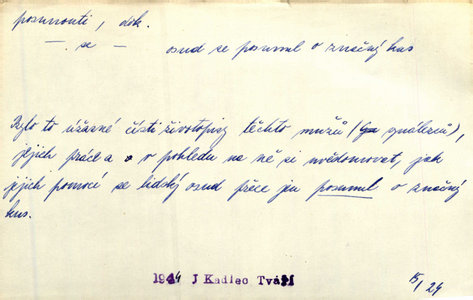 posunouti, dok.
— . se — osud se posunul o značný kus
Bylo to úžasné čísti životopisy těchto mužů (vynálezců),
jejich práce a v pohledu na ně si uvědomovat, jak
jejich pomocí se lidský osud přece jen posunul o značný
kus.
1944 J Kadlec Tváří 15/24